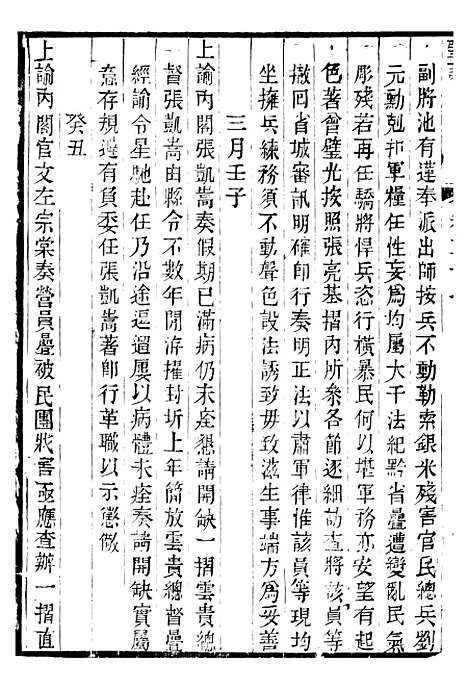 副將池有達奉派出師按兵不動勒索銀米殘害官民總兵劉
元勳剋扣軍糧任性妄為均屬大干法紀黔省疊遭變亂民氣
彫殘若再任驕將悍兵恣行橫暴民何以堪軍務亦安望有起
色著曾璧光按照張亮基摺內所參各節逐細訪查將該員等
撤回省城審訊明確即行奏明正法以肅軍律惟該員等現均
坐擁兵練務須不動聲色設法誘致毋致滋生事端方為妥善
三月壬子
上諭內閣張凱嵩奏假期已滿病仍未痊懇請開缺一摺雲貴總
督張凱嵩由縣令不數年閒洊擢封圻上年簡放雲貴總督疊
經諭令星馳赴任乃沿途逗遛屢以病體未痊奏請開缺實屬
意存規避有負委任張凱嵩著即行革職以示懲儆
癸丑
上諭內閣官文左宗棠奏營員疊被民團戕害亟應查辦一摺直